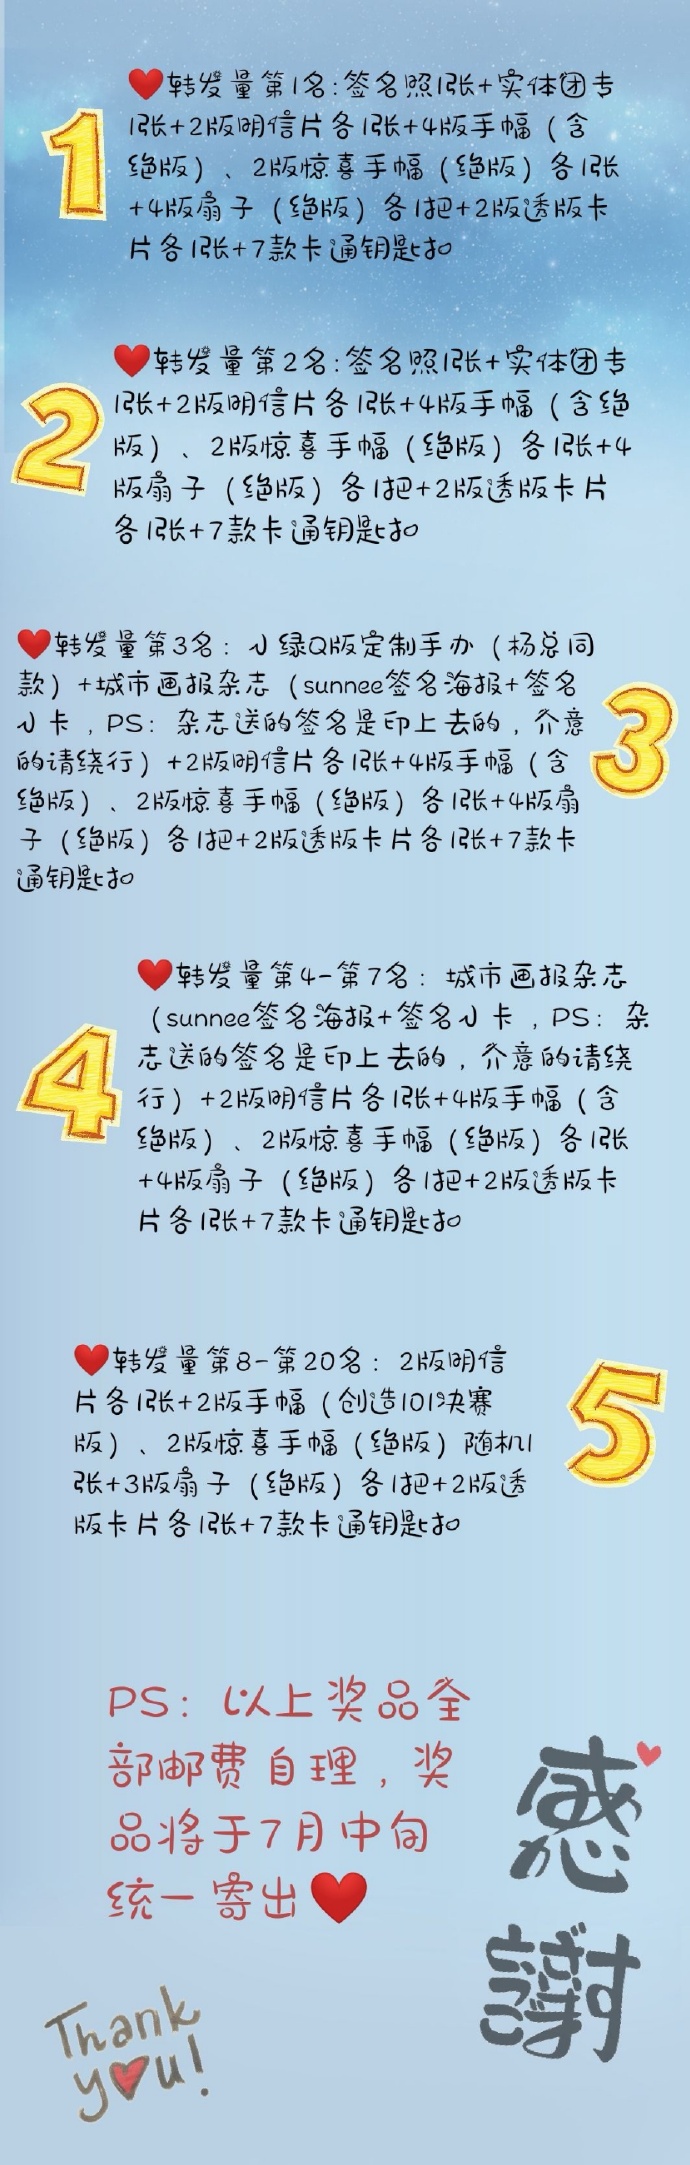 1
❤转发量第1名:签名照1张+实体团专
1张+2版明信片各1张+4版手幅（含
绝版）、2版惊喜手幅（绝版）各1张
+4版扇子（绝版）各1把+2版透版卡
片各1张+7款卡通钥匙扣
2
❤转发量第2名:签名照1张+实体团专
1张+2版明信片各1张+4版手幅（含绝
版）、2版惊喜手幅（绝版）各1张+4
版扇子（绝版）各1把+2版透版卡片
各1张+7款卡通钥匙扣
3
❤转发量第3名：小绿Q版定制手办（杨总同
款）+城市画报杂志（sunnee签名海报+签名
小卡，PS：杂志送的签名是印上去的，介意
的请绕行）+2版明信片各1张+4版手幅（含
绝版）、2版惊喜手幅（绝版）各1张+4版扇
子（绝版）各1把+2版透版卡片各1张+7款卡
通钥匙扣
4
❤转发量第4-第7名：城市画报杂志
（sunnee签名海报+签名小卡，PS：杂
志送的签名是印上去的，介意的请绕
行）+2版明信片各1张+4版手幅（含
绝版）、2版惊喜手幅（绝版）各1张
+4版扇子（绝版）各1把+2版透版卡
片各1张+7款卡通钥匙扣
5
❤转发量第8-第20名：2版明信
片各1张+2版手幅（创造101决赛
版）、2版惊喜手幅（绝版）随机1
张+3版扇子（绝版）各1把+2版透
版卡片各1张+7款卡通钥匙扣
PS：以上奖品全
部邮费自理，奖
品将于7月中旬
统一寄出❤
感
謝
Thank
you!